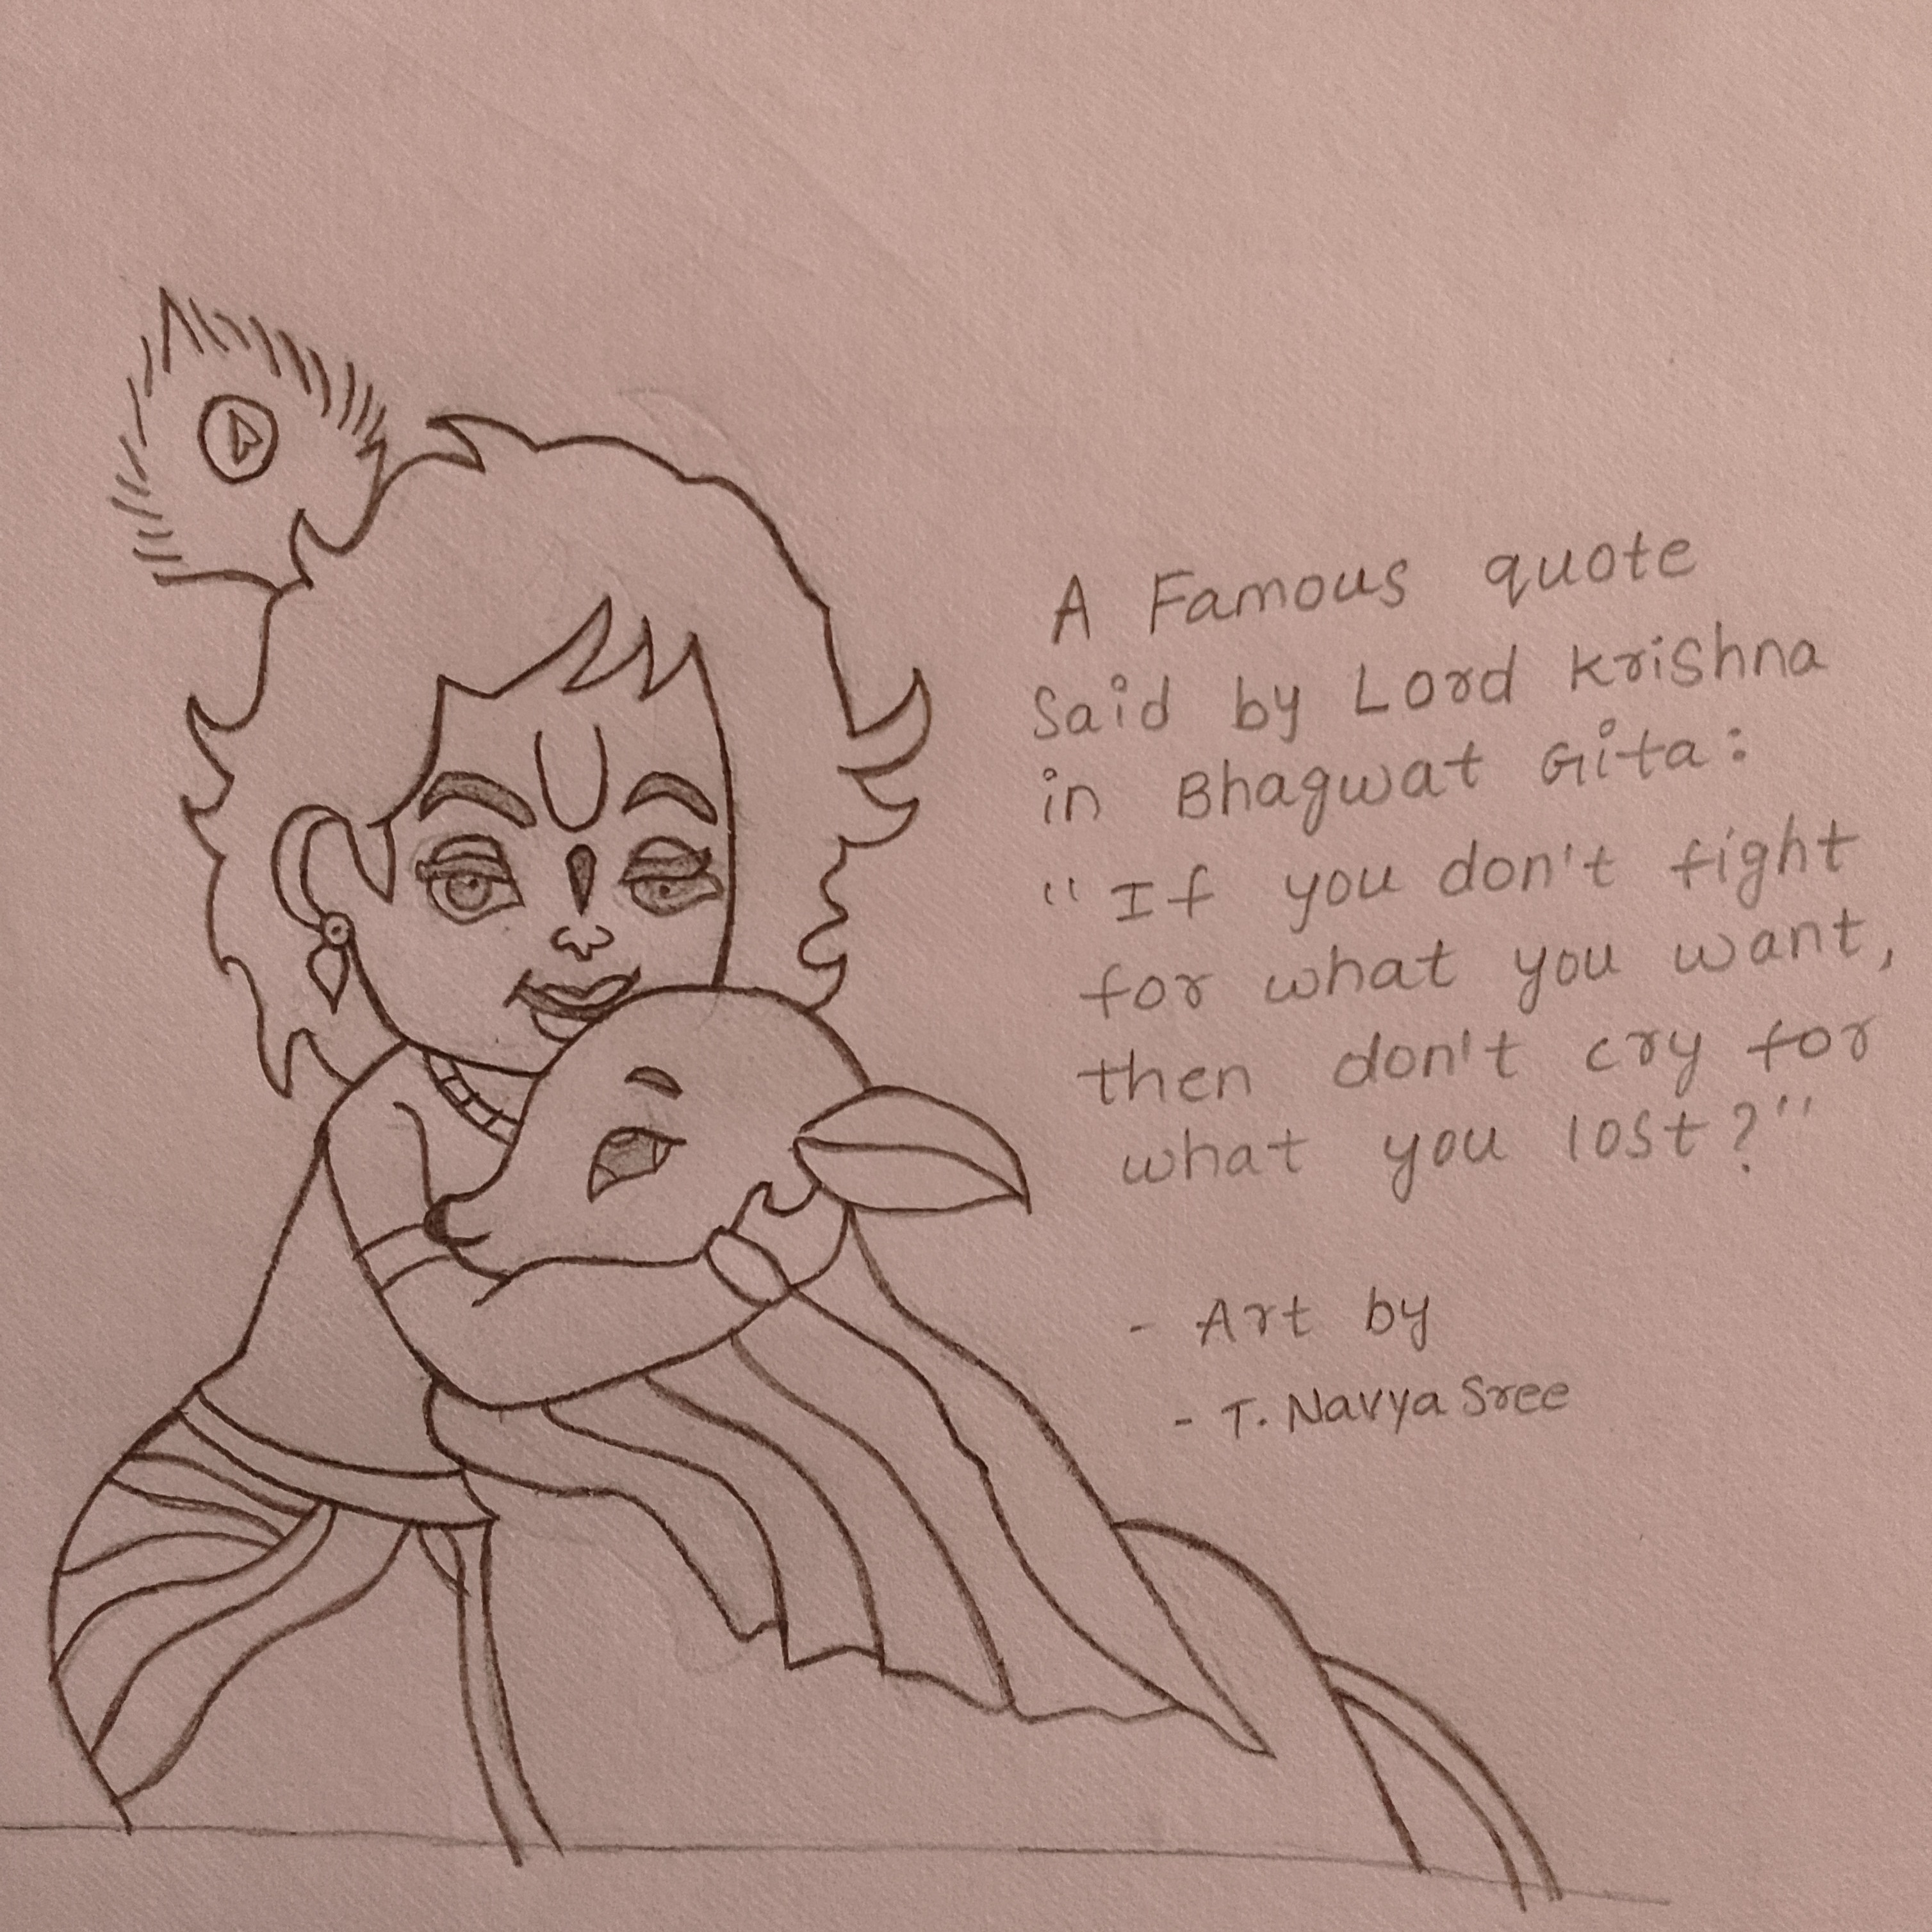 A Famous quote
Said by Lord Krishna
in Bhagwat Gita:
"If you don't fight
for what you want,
then don't cry for
what you lost?"
- Art by
- T. Navya Sree